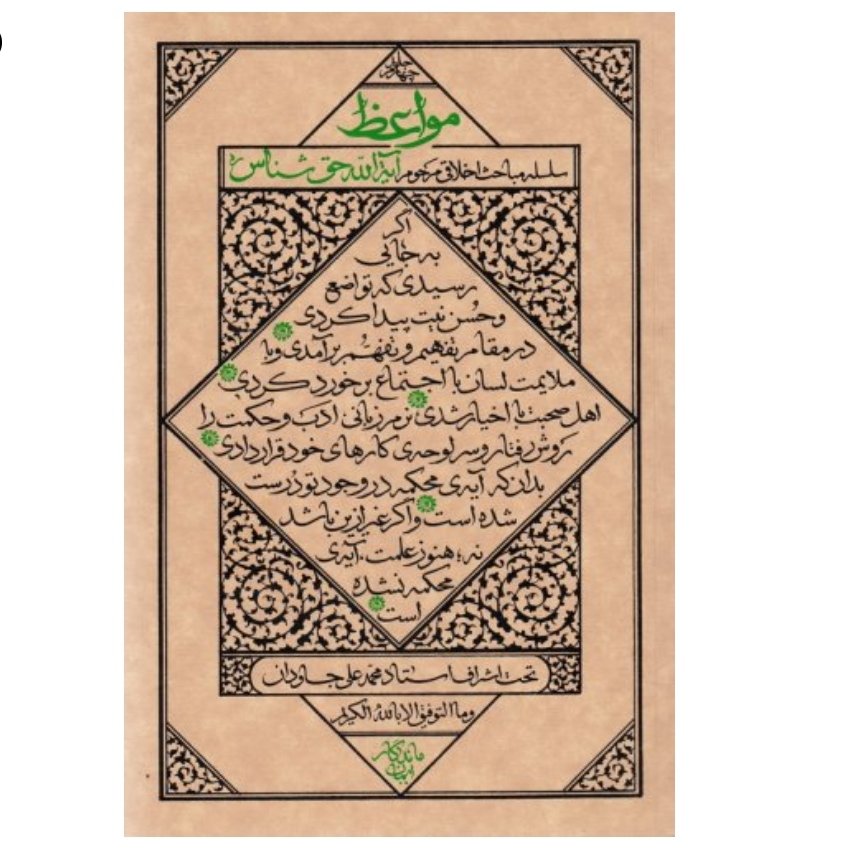 جلد چهارم
مواعظ
سلسله مباحث اخلاقی مرحوم آیة الله حق شناس ره
اگر
به جایی
رسیدی که تواضع
و حُسن نیّت پیدا کردی
در مقام تفهیم و تفهّم برآمدی و با
ملایمت لسان با اجتماع برخورد کردی
اهل صحبت با اخیار شدی نرم زبانی ادب و حکمت را
رَوِش رفتار و سرلوحه‌ی کارهای خود قرار دادی
بدان که آیه‌ی محکمه در وجود تو دُرست
شده است و اگر غیر از این باشد
نه؛ هنوز علمت، آیه‌ی
محکمه نشده
است
تحت اشراف استاد محمد علی جاودان
وما التوفیق الا بالله الکریم
ماندگار